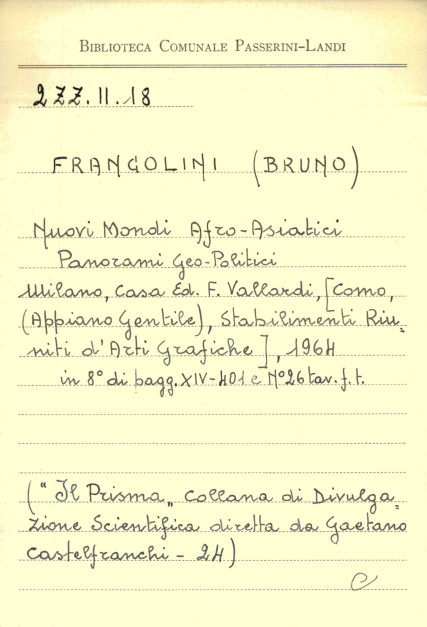 BIBLIOTECA COMUNALE PASSERINI-LANDI
2ZZ.II.18
FRANGOLINI (BRUNO)
Nuovi Mondi Afro-Asiatici
Panorami Geo-Politici
Milano, Casa Ed. F. Vallardi, [Como,
(Appiano Gentile), Stabilimenti Riu=
niti d'Arti Grafiche], 1964
in 8° di pagg. XIV-401 e N° 26 tav. f. t.
("Il Prisma„ Collana di Divulga=
zione Scientifica diretta da Gaetano
Castelfranchi - 24)
C